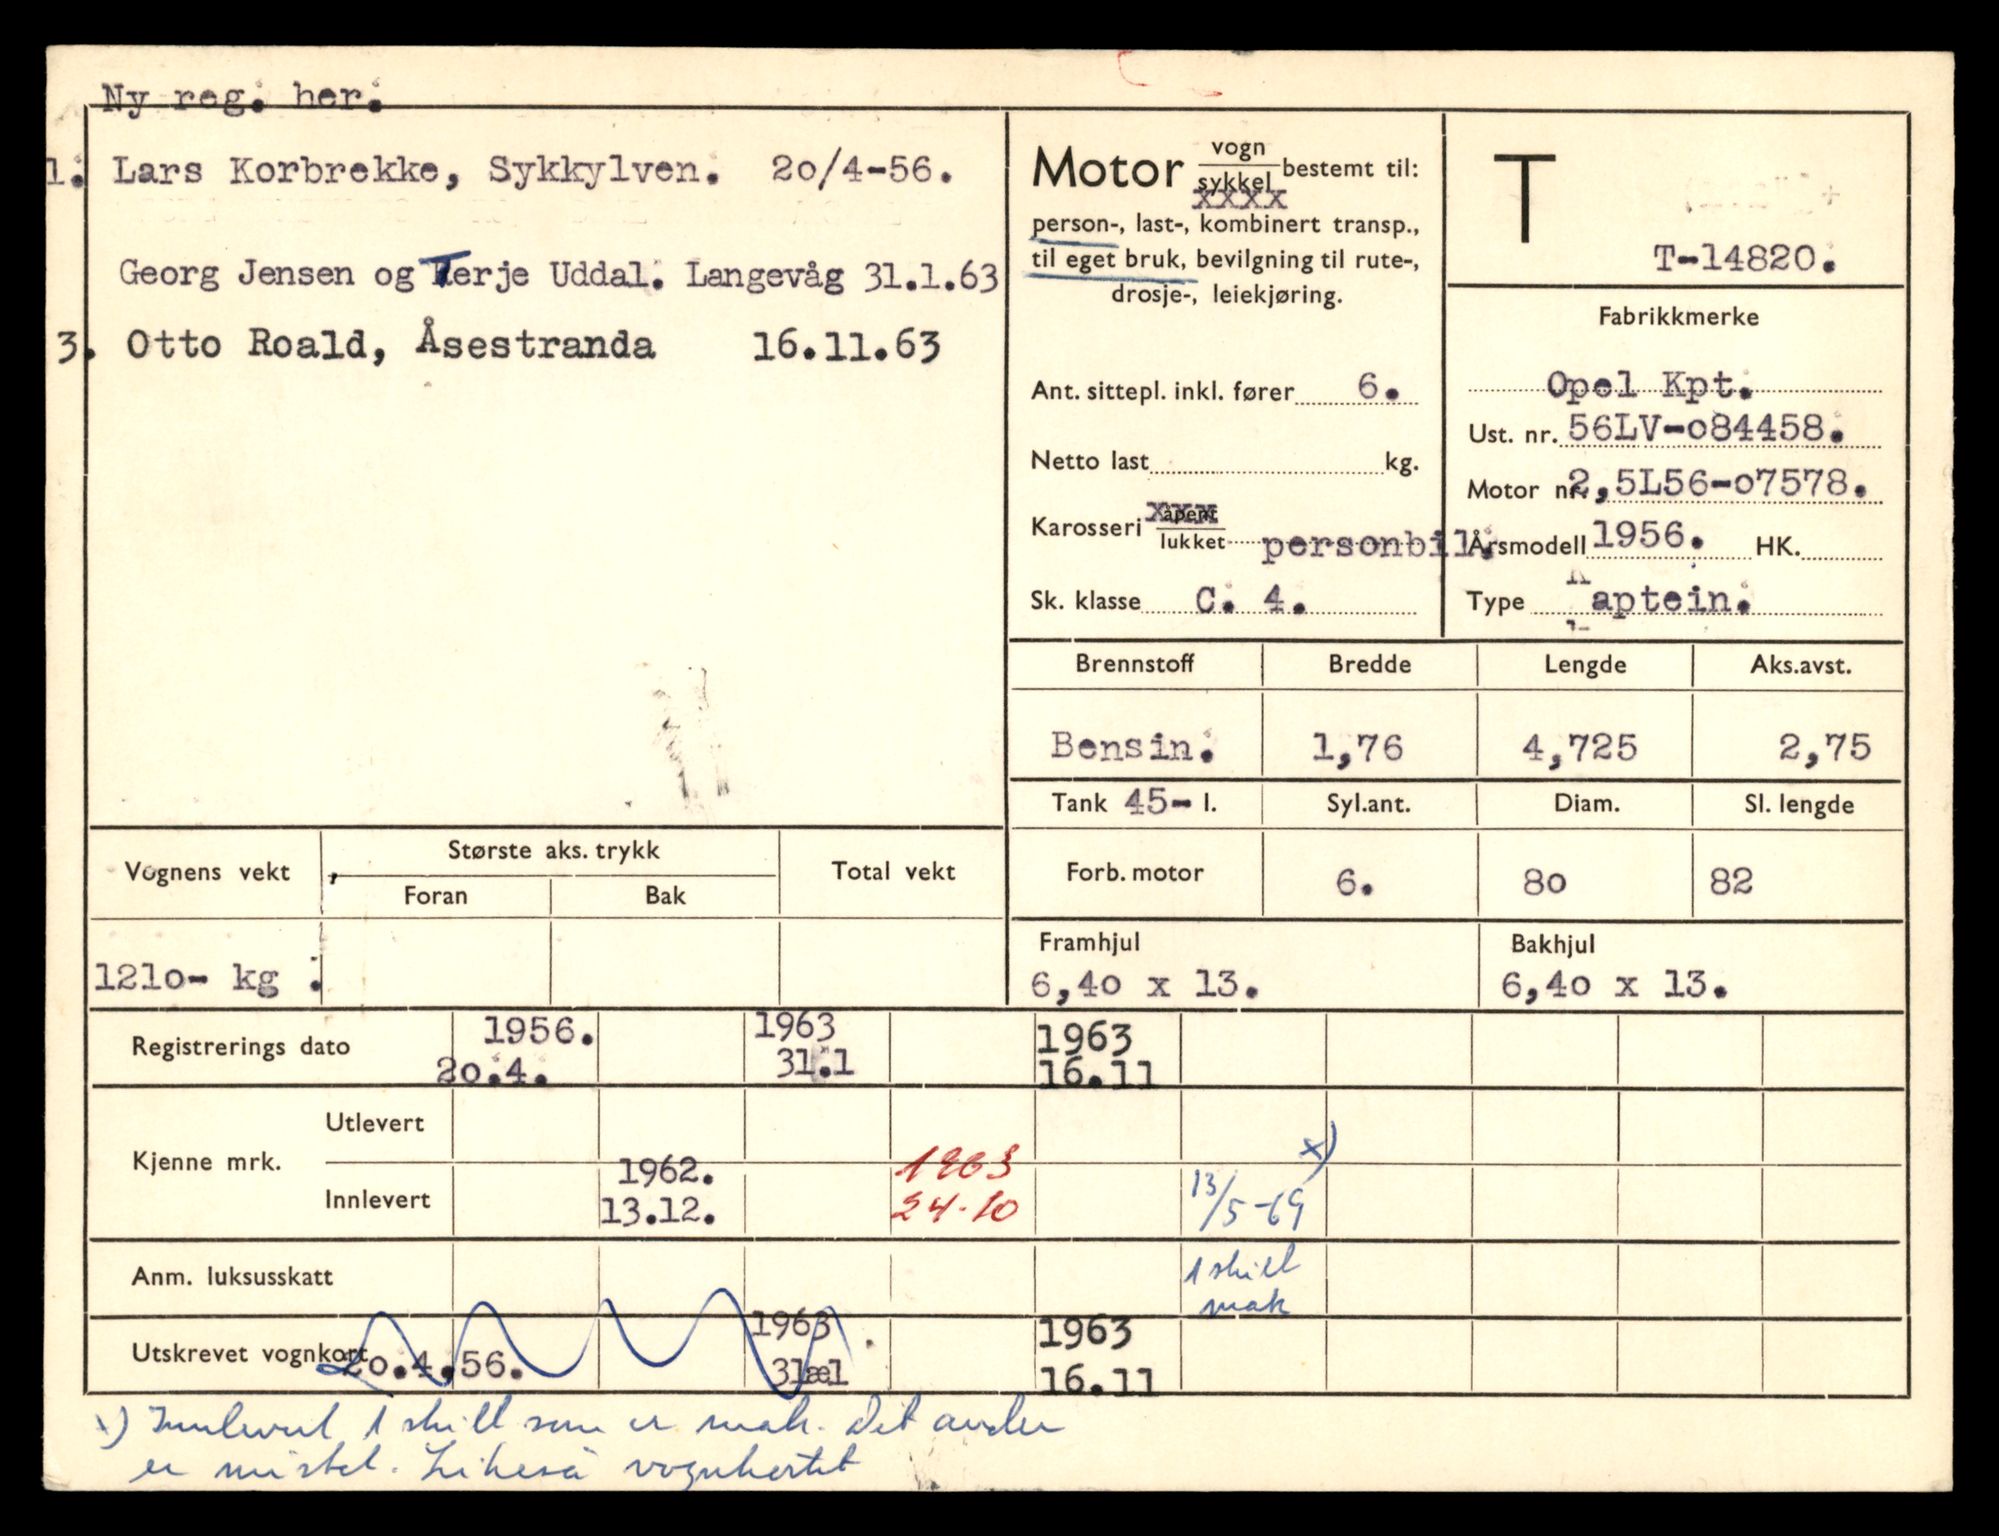 Ny reg. her.
1. Lars Korbrekke, Sykkylven. 20/4-56.
Georg Jensen og Terje Uddal. Langevåg 31.1.63
3. Otto Roald, Åsestranda 16.11.63
Motor vogn sykkel bestemt til:
xxxx
person-, last-, kombinert transp.,
til eget bruk, bevilgning til rute-,
drosje-, leiekjøring.
Ant. sittepl. inkl. fører 6.
Netto last kg.
Karosseri åpent lukket personbil.
xxx
Sk. klasse C. 4.
T
T-14820.
Fabrikkmerke
Opel Kpt.
Ust. nr. 56LV-o84458.
Motor nr. 2,5L56-o7578.
Årsmodell 1956. HK.
Type Kaptein.
Brennstoff Bredde Lengde Aks.avst.
Bensin. 1,76 4,725 2,75
Tank 45- l. Syl.ant. Diam. Sl. lengde
Forb. motor 6. 8o 82
Framhjul Bakhjul
6,4o x 13. 6,4o x 13.
Vognens vekt Største aks. trykk Total vekt
Foran Bak
121o- kg .
Registrerings dato 1956. 1963 1963
2o.4. 31.1 16.11
Kjenne mrk.
Utlevert x)
Innlevert 1962. 1963 13/5-69
13.12. 24-10
Anm. luksusskatt 1 skilt
mak
Utskrevet vognkort 2o.4.56. 1963 1963
31æl 16.11
x) Innlevert 1 skilt som er mak. Det andre
er mistet. Likeså vognkortet